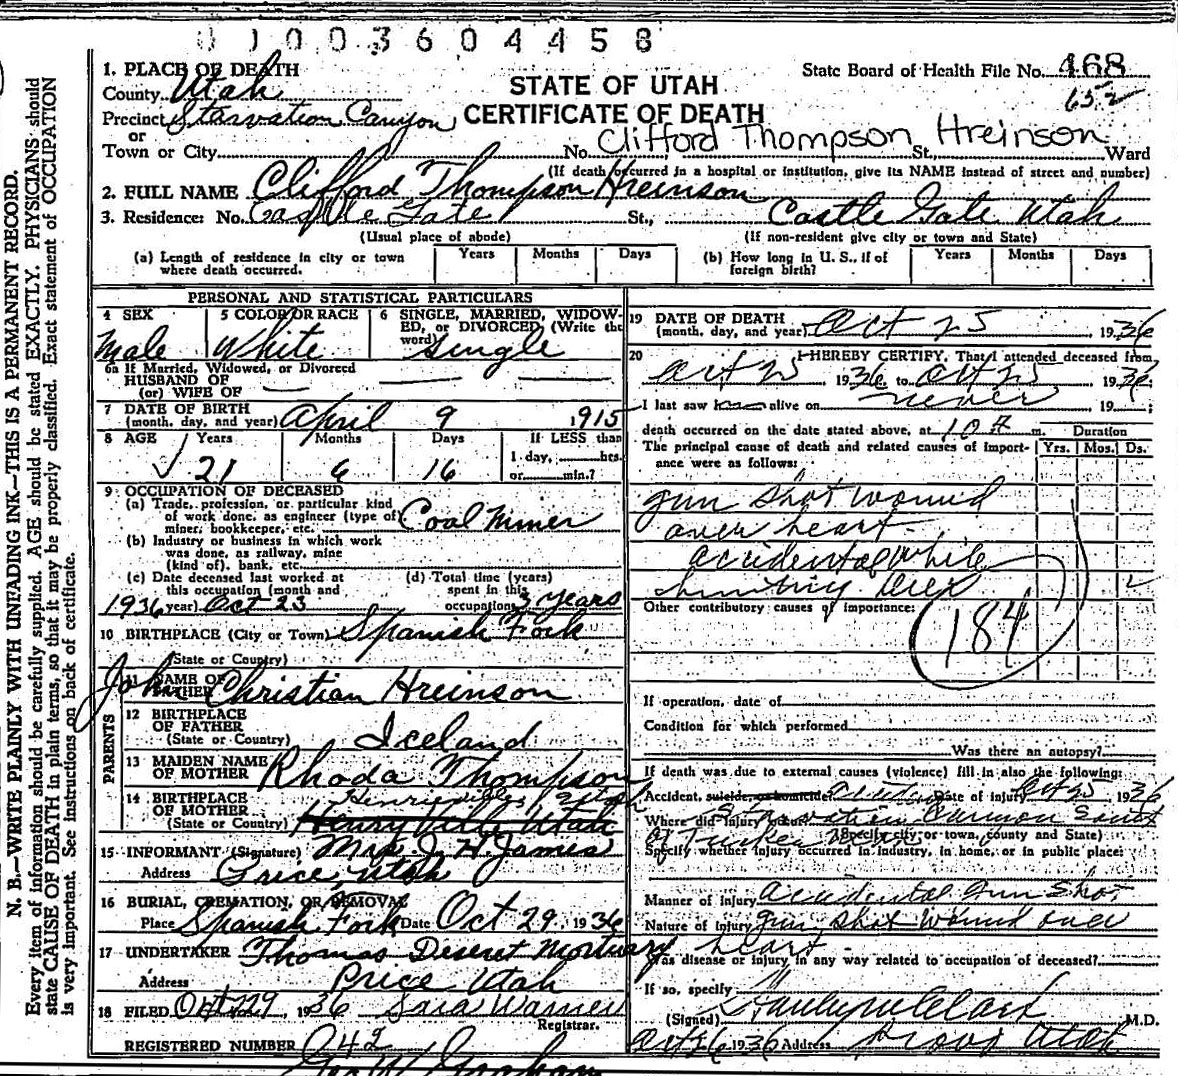 01003604458
1. PLACE OF DEATH
County Utah
Precinct Starvation Canyon
or
Town or City
STATE OF UTAH
CERTIFICATE OF DEATH
State Board of Health File No. 468
No. Clifford Thompson Hreinson St., Ward
(If death occurred in a hospital or institution, give its NAME instead of street and number)
2. FULL NAME Clifford Thompson Hreinson
3. Residence: No. Castle Gate St., Castle Gate Utah
(Usual place of abode) (If non-resident give city or town and State)
(a) Length of residence in city or town where death occurred. Years Months Days
(b) How long in U. S., if of foreign birth? Years Months Days
PERSONAL AND STATISTICAL PARTICULARS
4 SEX 5 COLOR OR RACE 6 SINGLE, MARRIED, WIDOWED, or DIVORCED (Write the word)
Male White Single
6a If Married, Widowed, or Divorced
HUSBAND OF
(or) WIFE OF
7 DATE OF BIRTH
(month, day, and year) April 9 1915
8 AGE Years Months Days If LESS than
21 6 16 1 day, hrs.
or min.?
9 OCCUPATION OF DECEASED
(a) Trade, profession, or particular kind
of work done, as engineer (type of) Coal Miner
miner, bookkeeper, etc.
(b) Industry or business in which work
was done, as railway, mine
(kind of), bank, etc.
(c) Date deceased last worked at
this occupation (month and
year) 1936 Oct 23
(d) Total time (years)
spent in this
occupation 3 years
10 BIRTHPLACE (City or Town) Spanish Fork
(State or Country)
PARENTS
11 NAME OF
FATHER John Christian Hreinson
12 BIRTHPLACE
OF FATHER
(State or Country) Iceland
13 MAIDEN NAME
OF MOTHER Rhoda Thompson
14 BIRTHPLACE Henrieville, Utah
OF MOTHER
(State or Country) Henry Ville Utah
15 INFORMANT (Signature) Mrs. J. H. James
Address Price, Utah
16 BURIAL, CREMATION, OR REMOVAL
Place Spanish Fork Date Oct 29, 1936
17 UNDERTAKER Thomas Deseret Mortuary
Address Price Utah
18 FILED Oct 29, 1936 Sara Warner
Registrar.
REGISTERED NUMBER 42
19 DATE OF DEATH
(month, day, and year) Oct 25 1936
20 I HEREBY CERTIFY, That I attended deceased from
Oct 25, 1936 to Oct 25, 1936;
I last saw h alive on never 19 ;
death occurred on the date stated above, at 10 A m. Duration
The principal cause of death and related causes of importance were as follows: Yrs. Mos. Ds.
gun shot wound
over heart
accidental while
hunting Deer
Other contributory causes of importance:
184
If operation, date of
Condition for which performed
Was there an autopsy?
If death was due to external causes (violence) fill in also the following:
Accident, suicide, or homicide? accident Date of injury Oct 25 1936
Where did injury occur? Starvation Canyon
(Specify city or town, county and State)
Specify whether injury occurred in industry, in home, or in public place:
Manner of injury accidental gun shot
Nature of injury gun shot wound over
heart.
Was disease or injury, in any way related to occupation of deceased?
If so, specify
(Signed) M.D.
1936 Address Provo Utah
N. B.—WRITE PLAINLY WITH UNFADING INK—THIS IS A PERMANENT RECORD.
Every item of information should be carefully supplied. AGE should be stated EXACTLY. PHYSICIANS should
state CAUSE OF DEATH in plain terms, so that it may be properly classified. Exact statement of OCCUPATION
is very important. See instructions on back of certificate.